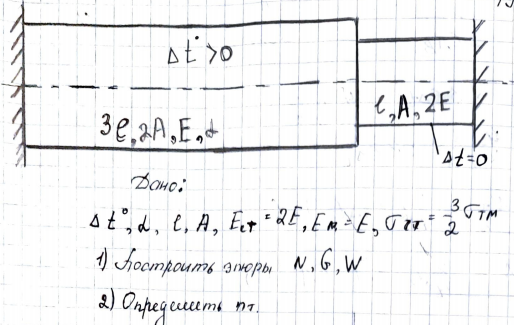 Δt°>0
3l, 2A, E, α
l, A, 2E
Δt=0
Дано:
Δt°, α, l, A, Eст = 2E, Eм = E, σтст = 3/2 σтм
1) Построить эпюры N, σ, W
2) Определить nт.